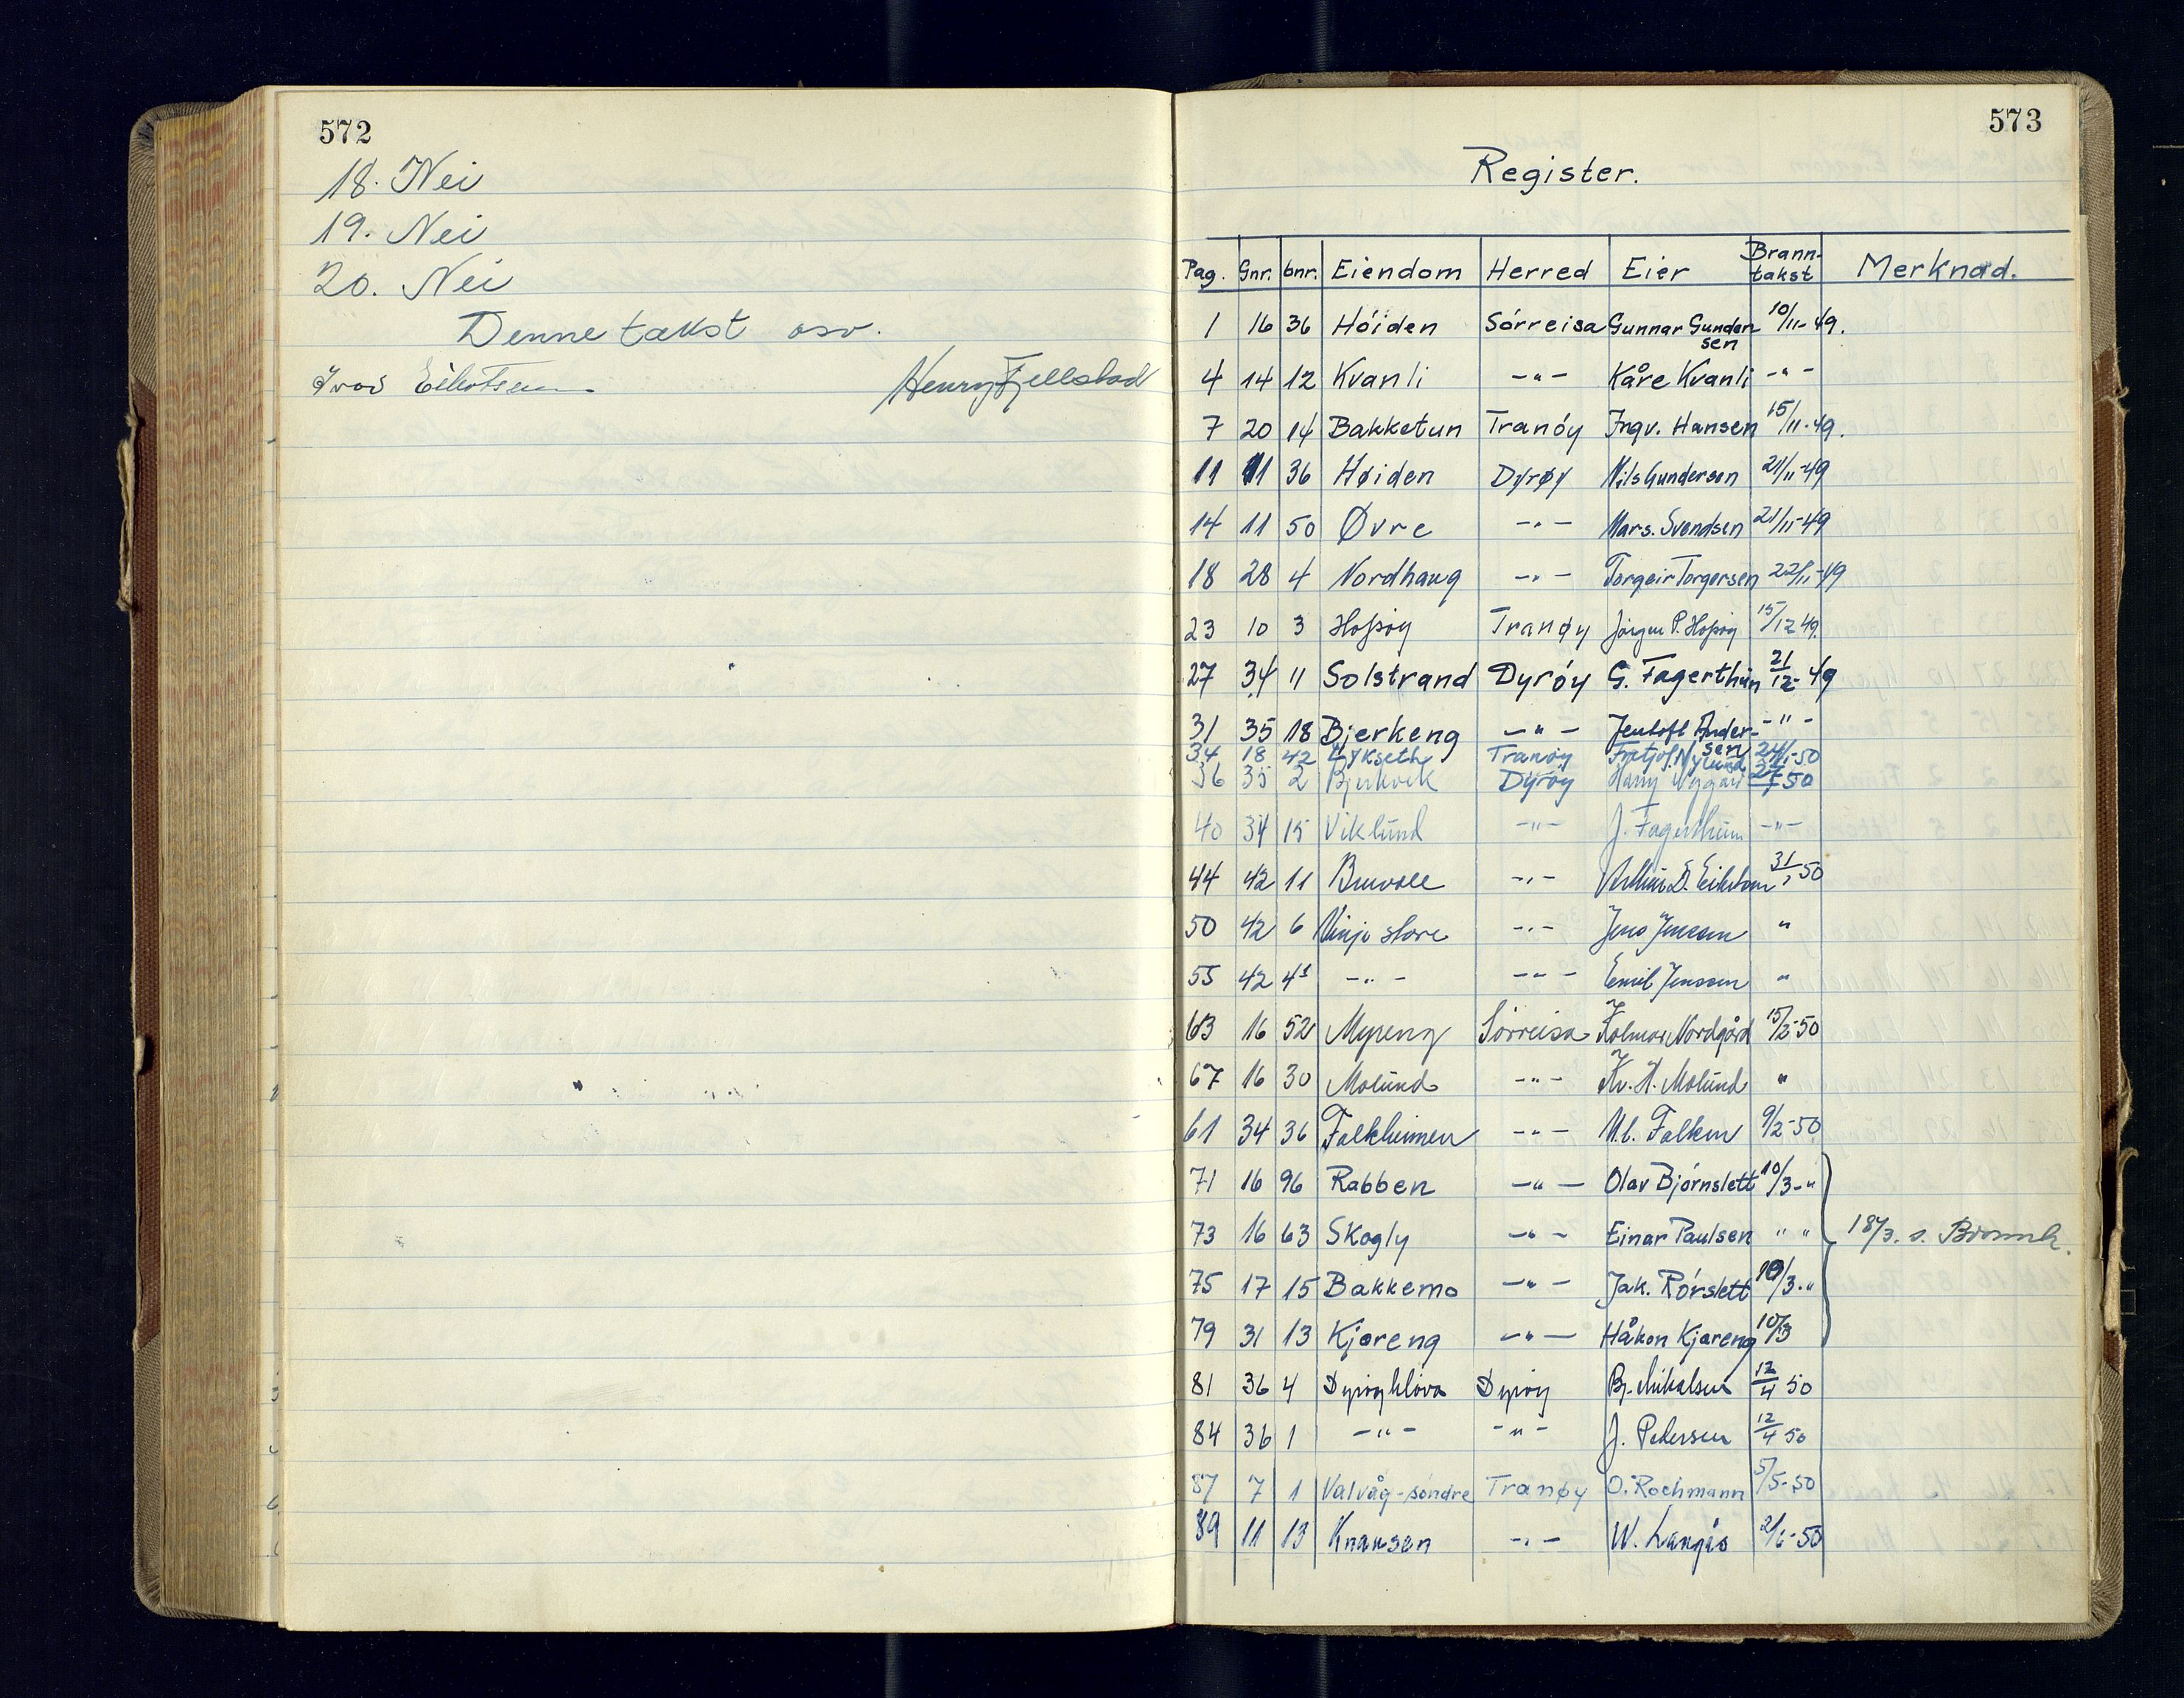 572
18. Nei
19. Nei
20. Nei
Denne takst osv.
Ivar Eilertsen Henry Fjellstad
573
Register.
Pag. Gnr. bnr. Eiendom Herred Eier Brann-takst Merknad.
1 16 36 Höiden Sórreisa Gunnar Gundersen 10/11-49.
4 14 12 Kvanli -"- Kåre Kvanli -"-
7 20 14 Bakketun Tranóy Ingv. Hansen 15/11-49.
11 11 36 Høiden Dyrøy Nils Gundersen 21/11-49
14 11 50 Øvre -"- Mars. Svendsen 21/11-49
18 28 4 Nordhaug -"- Torgeir Torgersen 22/11-49
23 10 3 Hofsøy Tranøy Jörgen P. Hofsöy 15/12 49.
27 34 11 Solstrand Dyróy G. Fagerthun 21/12-49
31 35 18 Bjerkeng -"- Jentoft Andersen -"-
34 18 42 Lykseth Tranöy Fritjof Nylund 24/1-50
36 35 2 Bjerkvik Dyröy Harry Nygård 27/1 50
40 34 15 Viklund -"- J. Fagerthun -"-
44 42 11 Bruvoll -"- Arthur E. 31/1 50
50 42 6 Vinje store -"- Jens Jenssen "
55 42 4¹ -"- -"- Emil Jenssen "
63 16 52 Myreng Sörreisa Kolmar Nordgård 15/2-50
67 16 30 Molund -"- Kr. H. Molund "
61 34 36 Falkheimen -"- M. Falken 9/2-50
71 16 96 Rabben -"- Olav Bjórnslett 10/3-"
73 16 63 Skogly -"- Einar Paulsen " " 18/3. s.
75 17 15 Bakkemo -"- Jak. Rórslett 10/3-"
79 31 13 Kjøreng -"- Håkon Kjøreng 10/3
81 36 4 Dyröyklöva Dyröy B. Mikalsen 12/4 50
84 36 1 -"- -"- J. Pedersen 12/4 50
87 7 1 Valvåg-söndre Tranøy O. Rochmann 5/5-50
89 11 13 Knausen -"- W. Langås 2/6-50